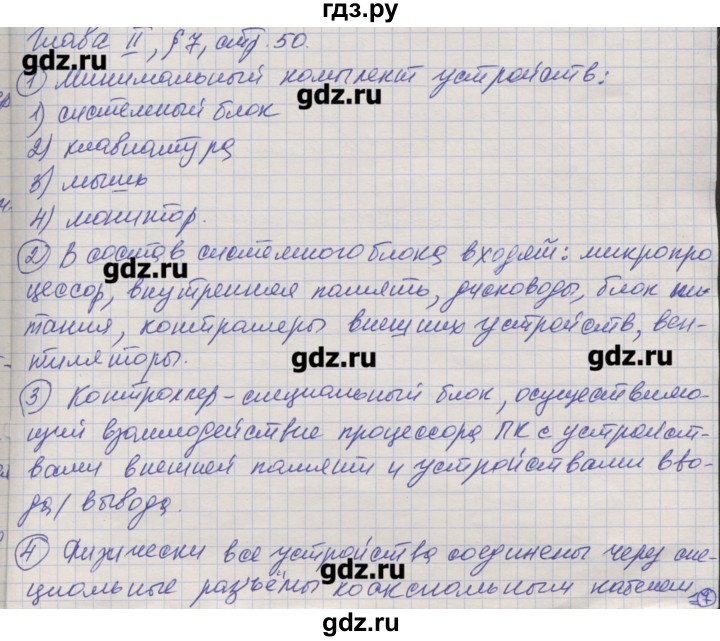 гдз.ру
Глава II, § 7, стр. 50.
gdz.ru
① Минимальный комплект устройств:
gdz.ru
1) системный блок
2) клавиатура
3) мышь
4) монитор.
② В состав системного блока входят: микропро
gdz.ru
цессор, внутренняя память, дисководы, блок пи
тания, контроллеры внешних устройств, вен-
gdz.ru
gdz.ru
тиляторы.
③ Контроллер - специальный блок, осуществляю-
щий взаимодействие процессора ПК с устройст-
вами внешней памяти и устройствами вво-
да/вывода.
gdz.ru
④ Физически все устройства соединены через спе-
gdz.ru
циальные разъёмы коаксиальным кабелем. ⑦
gdz.ru